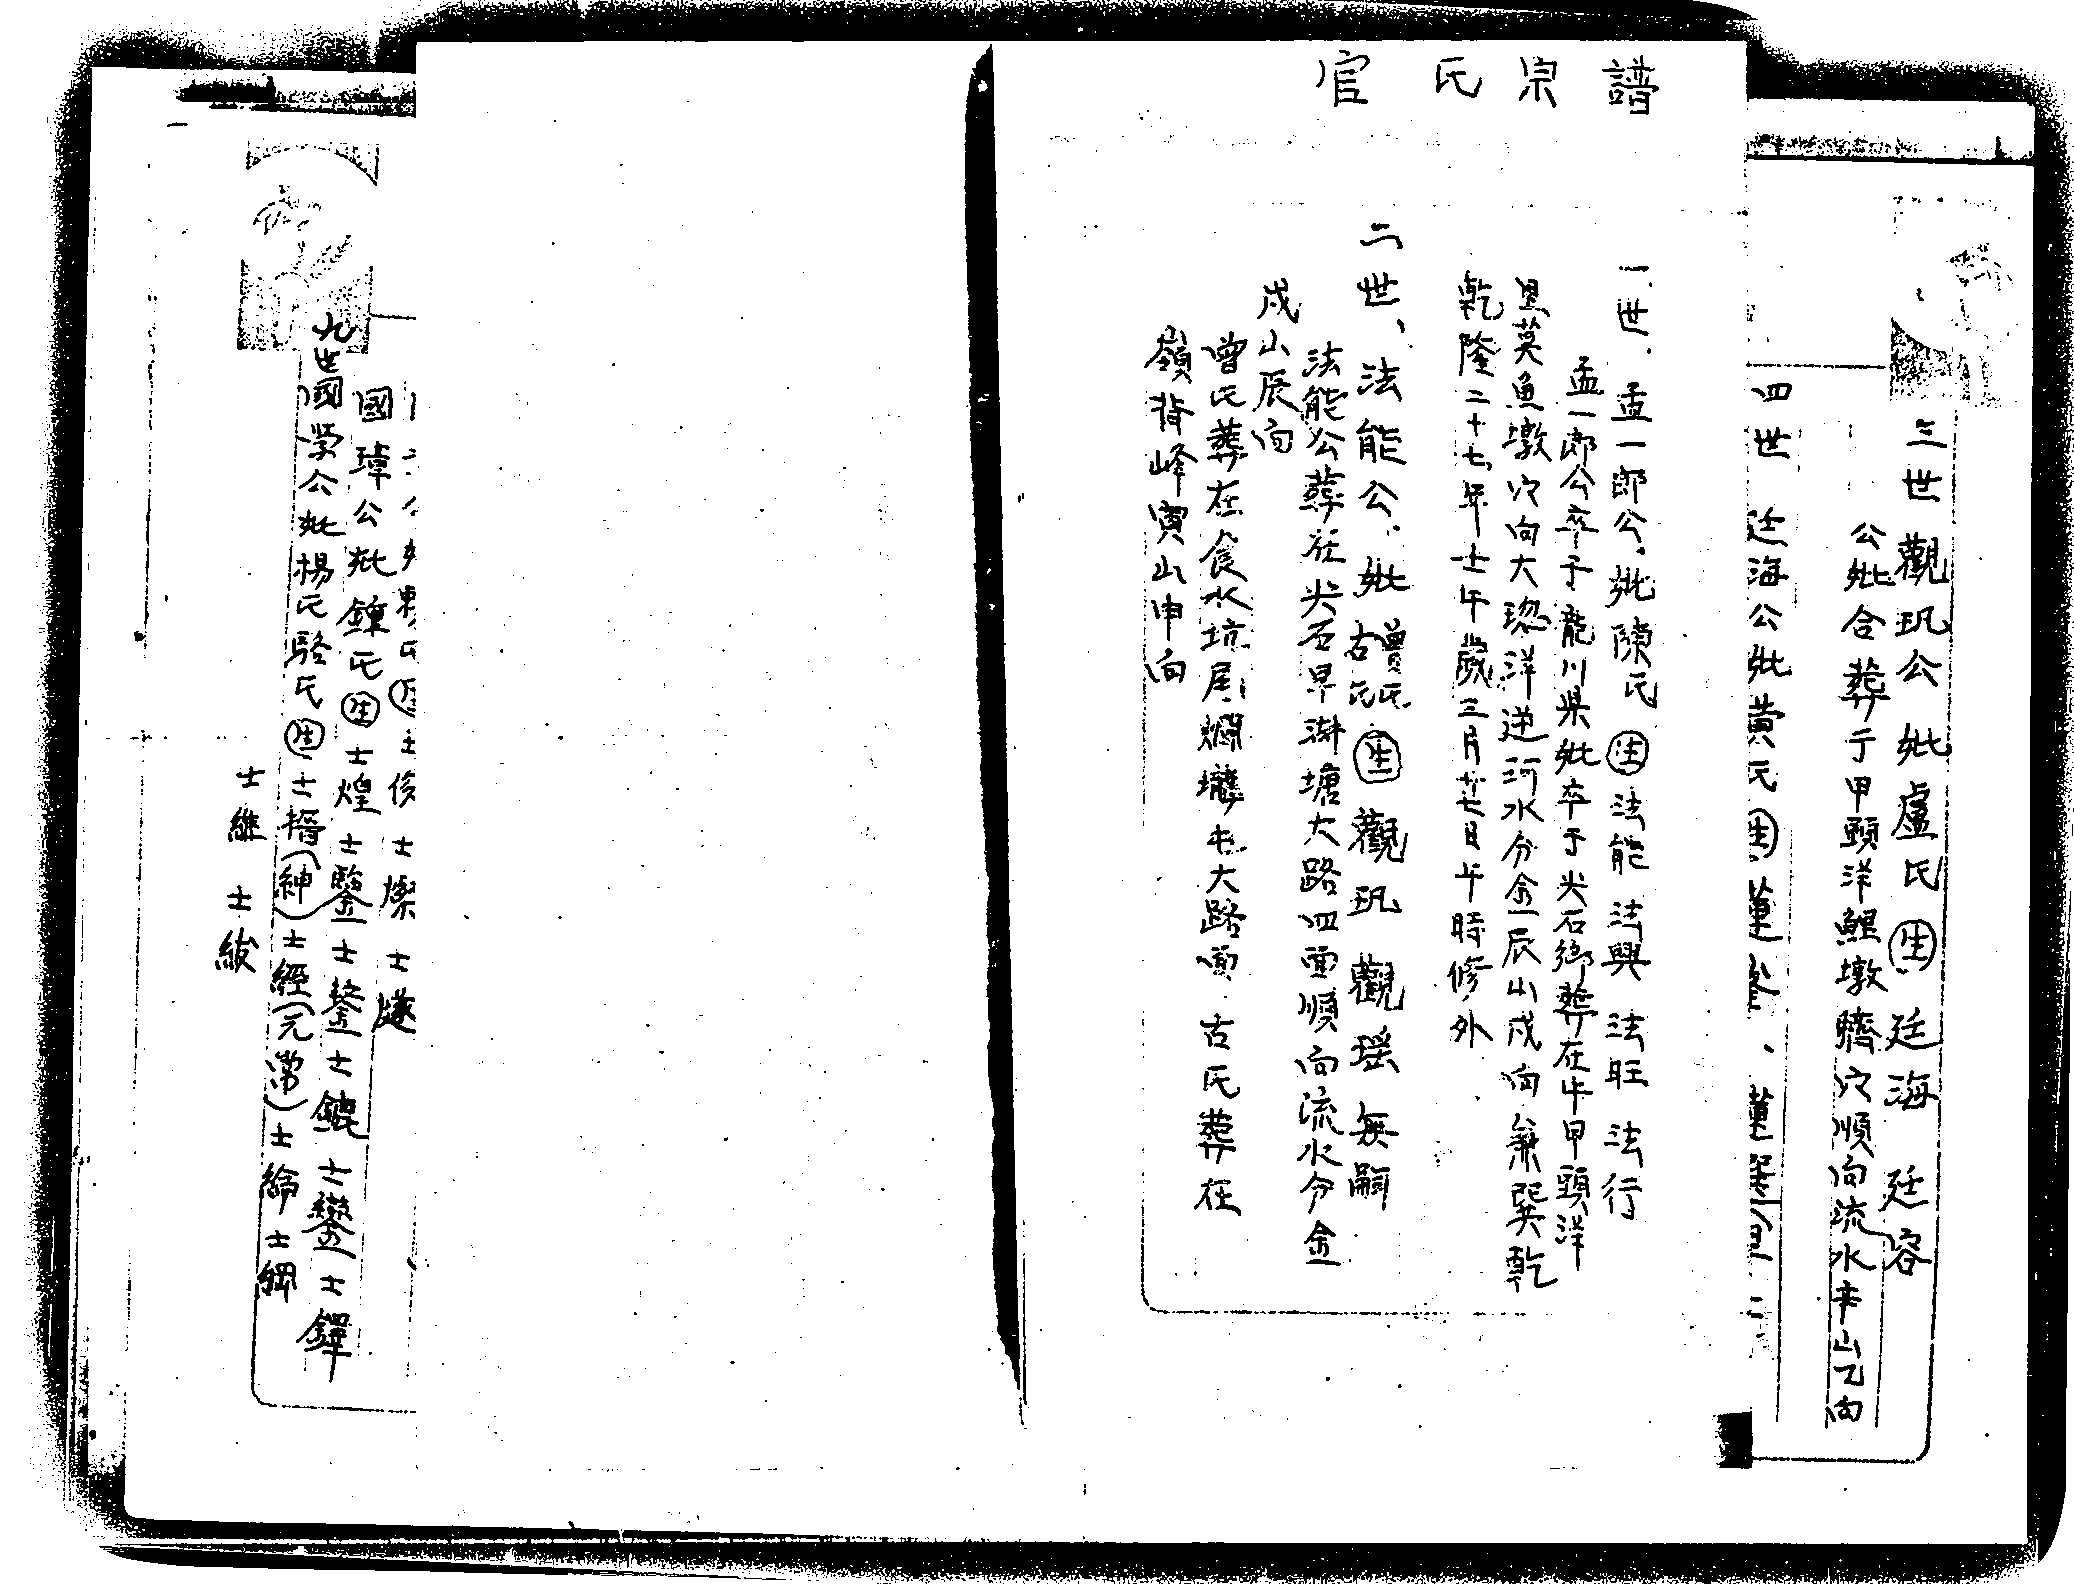 官氏宗譜
三世觀玑公妣盧氏生廷海 廷容
公妣合葬于甲頭洋鯉墩臍穴順向流水辛山乙向
四世 廷海公妣黄氏生
一世.孟一郎公.妣陳氏生法能 法興 法旺 法行
孟一郎公卒于龍川県妣卒于尖石鄉葬在牛甲頭洋
莫魚墩穴向大璁洋逆河水分金辰山戌向兼巽乾
乾隆二十七年壬午歲三月廿七日午時修外
二世、法能公.妣曾氏古氏生觀玑 觀瑶 無嗣
法能公葬在尖石旱湖塘大路四面順向流水分金
戌山辰向
曾氏葬在食水坑尾爛壠屯大路面.古氏葬在
嶺背峰寅山申向
妣賴氏生士俊 士燦 士燧
國璋公妣鍾氏生士煌 士鑒 士鋈 士鑣 士鑾 士鐸
九世國学公妣楊氏駱氏生士搢(紳)士經(元常)士綸 士綱
士維 士紱